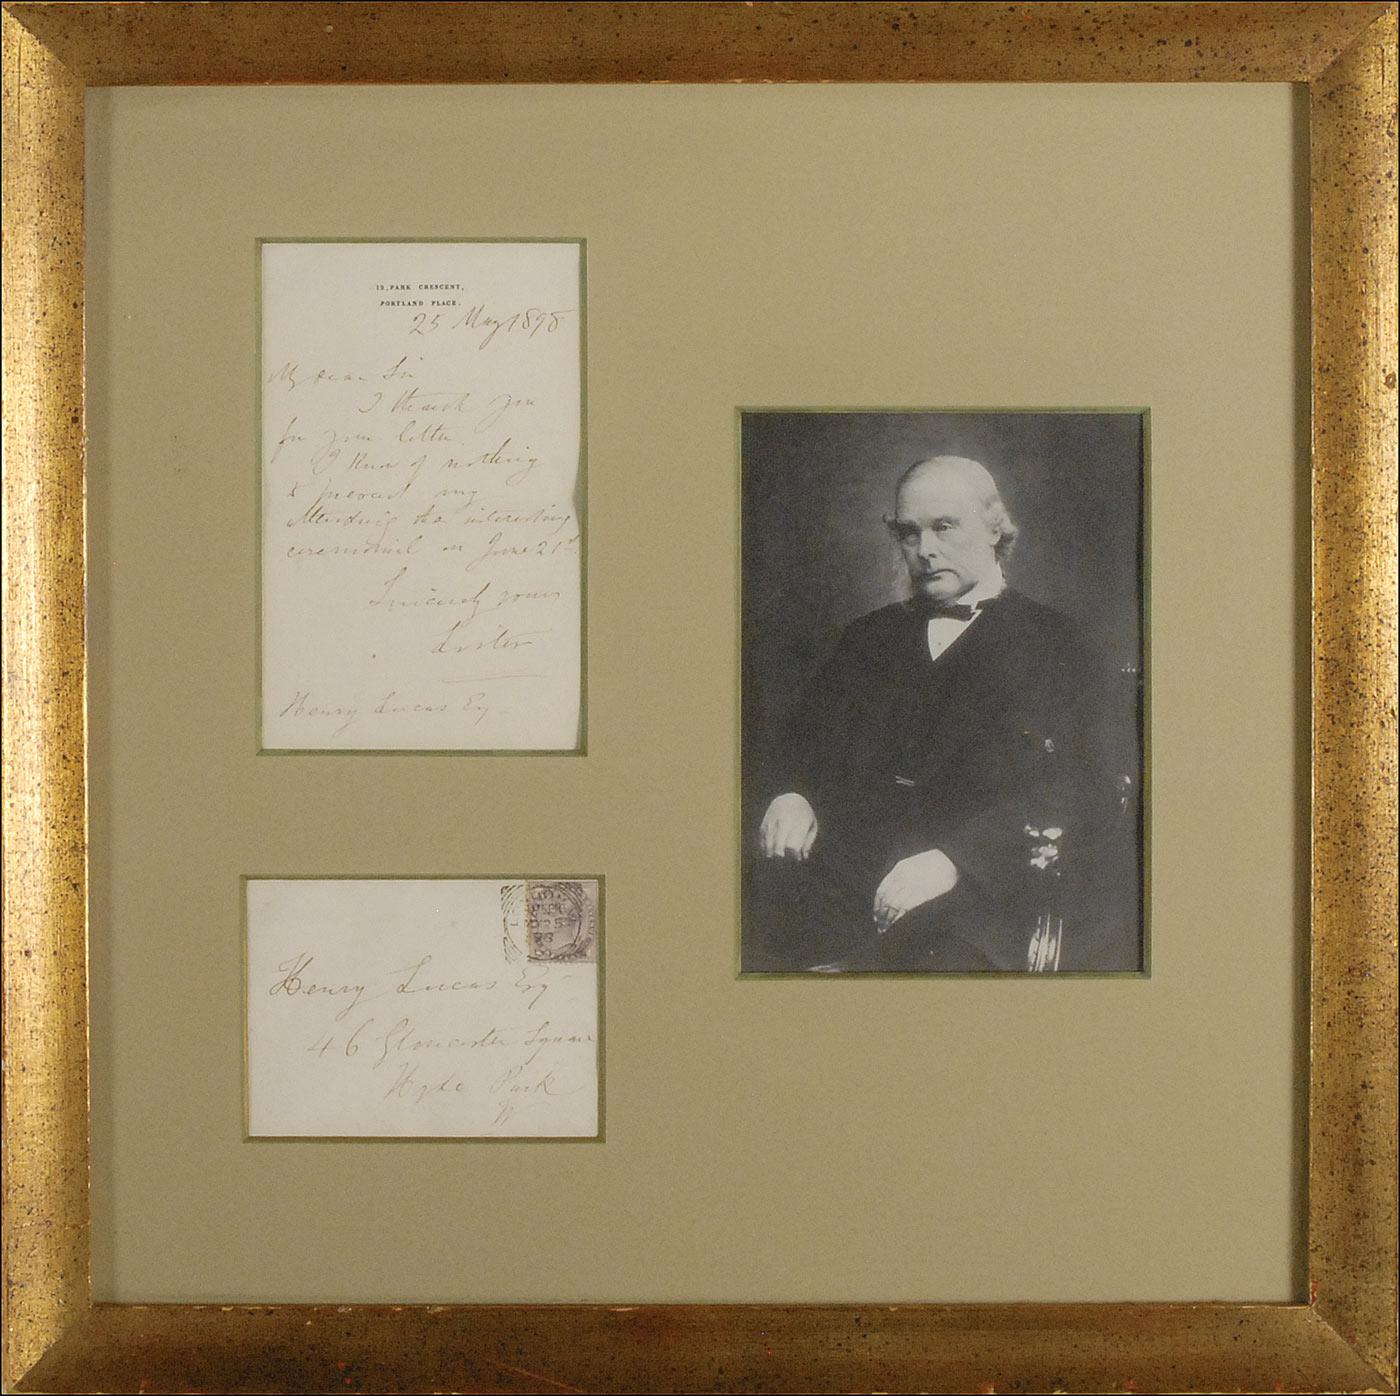 12, PARK CRESCENT,
PORTLAND PLACE.
25 May 1898
My dear Sir
I thank you
for your letter.
I know of nothing
to prevent my
attending the interesting
ceremonial on June 21st.
Sincerely yours
Lister
Henry Lucas Esq
Henry Lucas Esq
46 Gloucester Square
Hyde Park
W